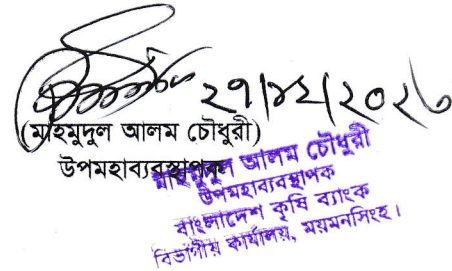 ২৭/১২/২০২৩
(মাহমুদুল আলম চৌধুরী)
উপমহাব্যবস্থাপক
মাহমুদুল আলম চৌধুরী
উপমহাব্যবস্থাপক
বাংলাদেশ কৃষি ব্যাংক
বিভাগীয় কার্যালয়, ময়মনসিংহ।